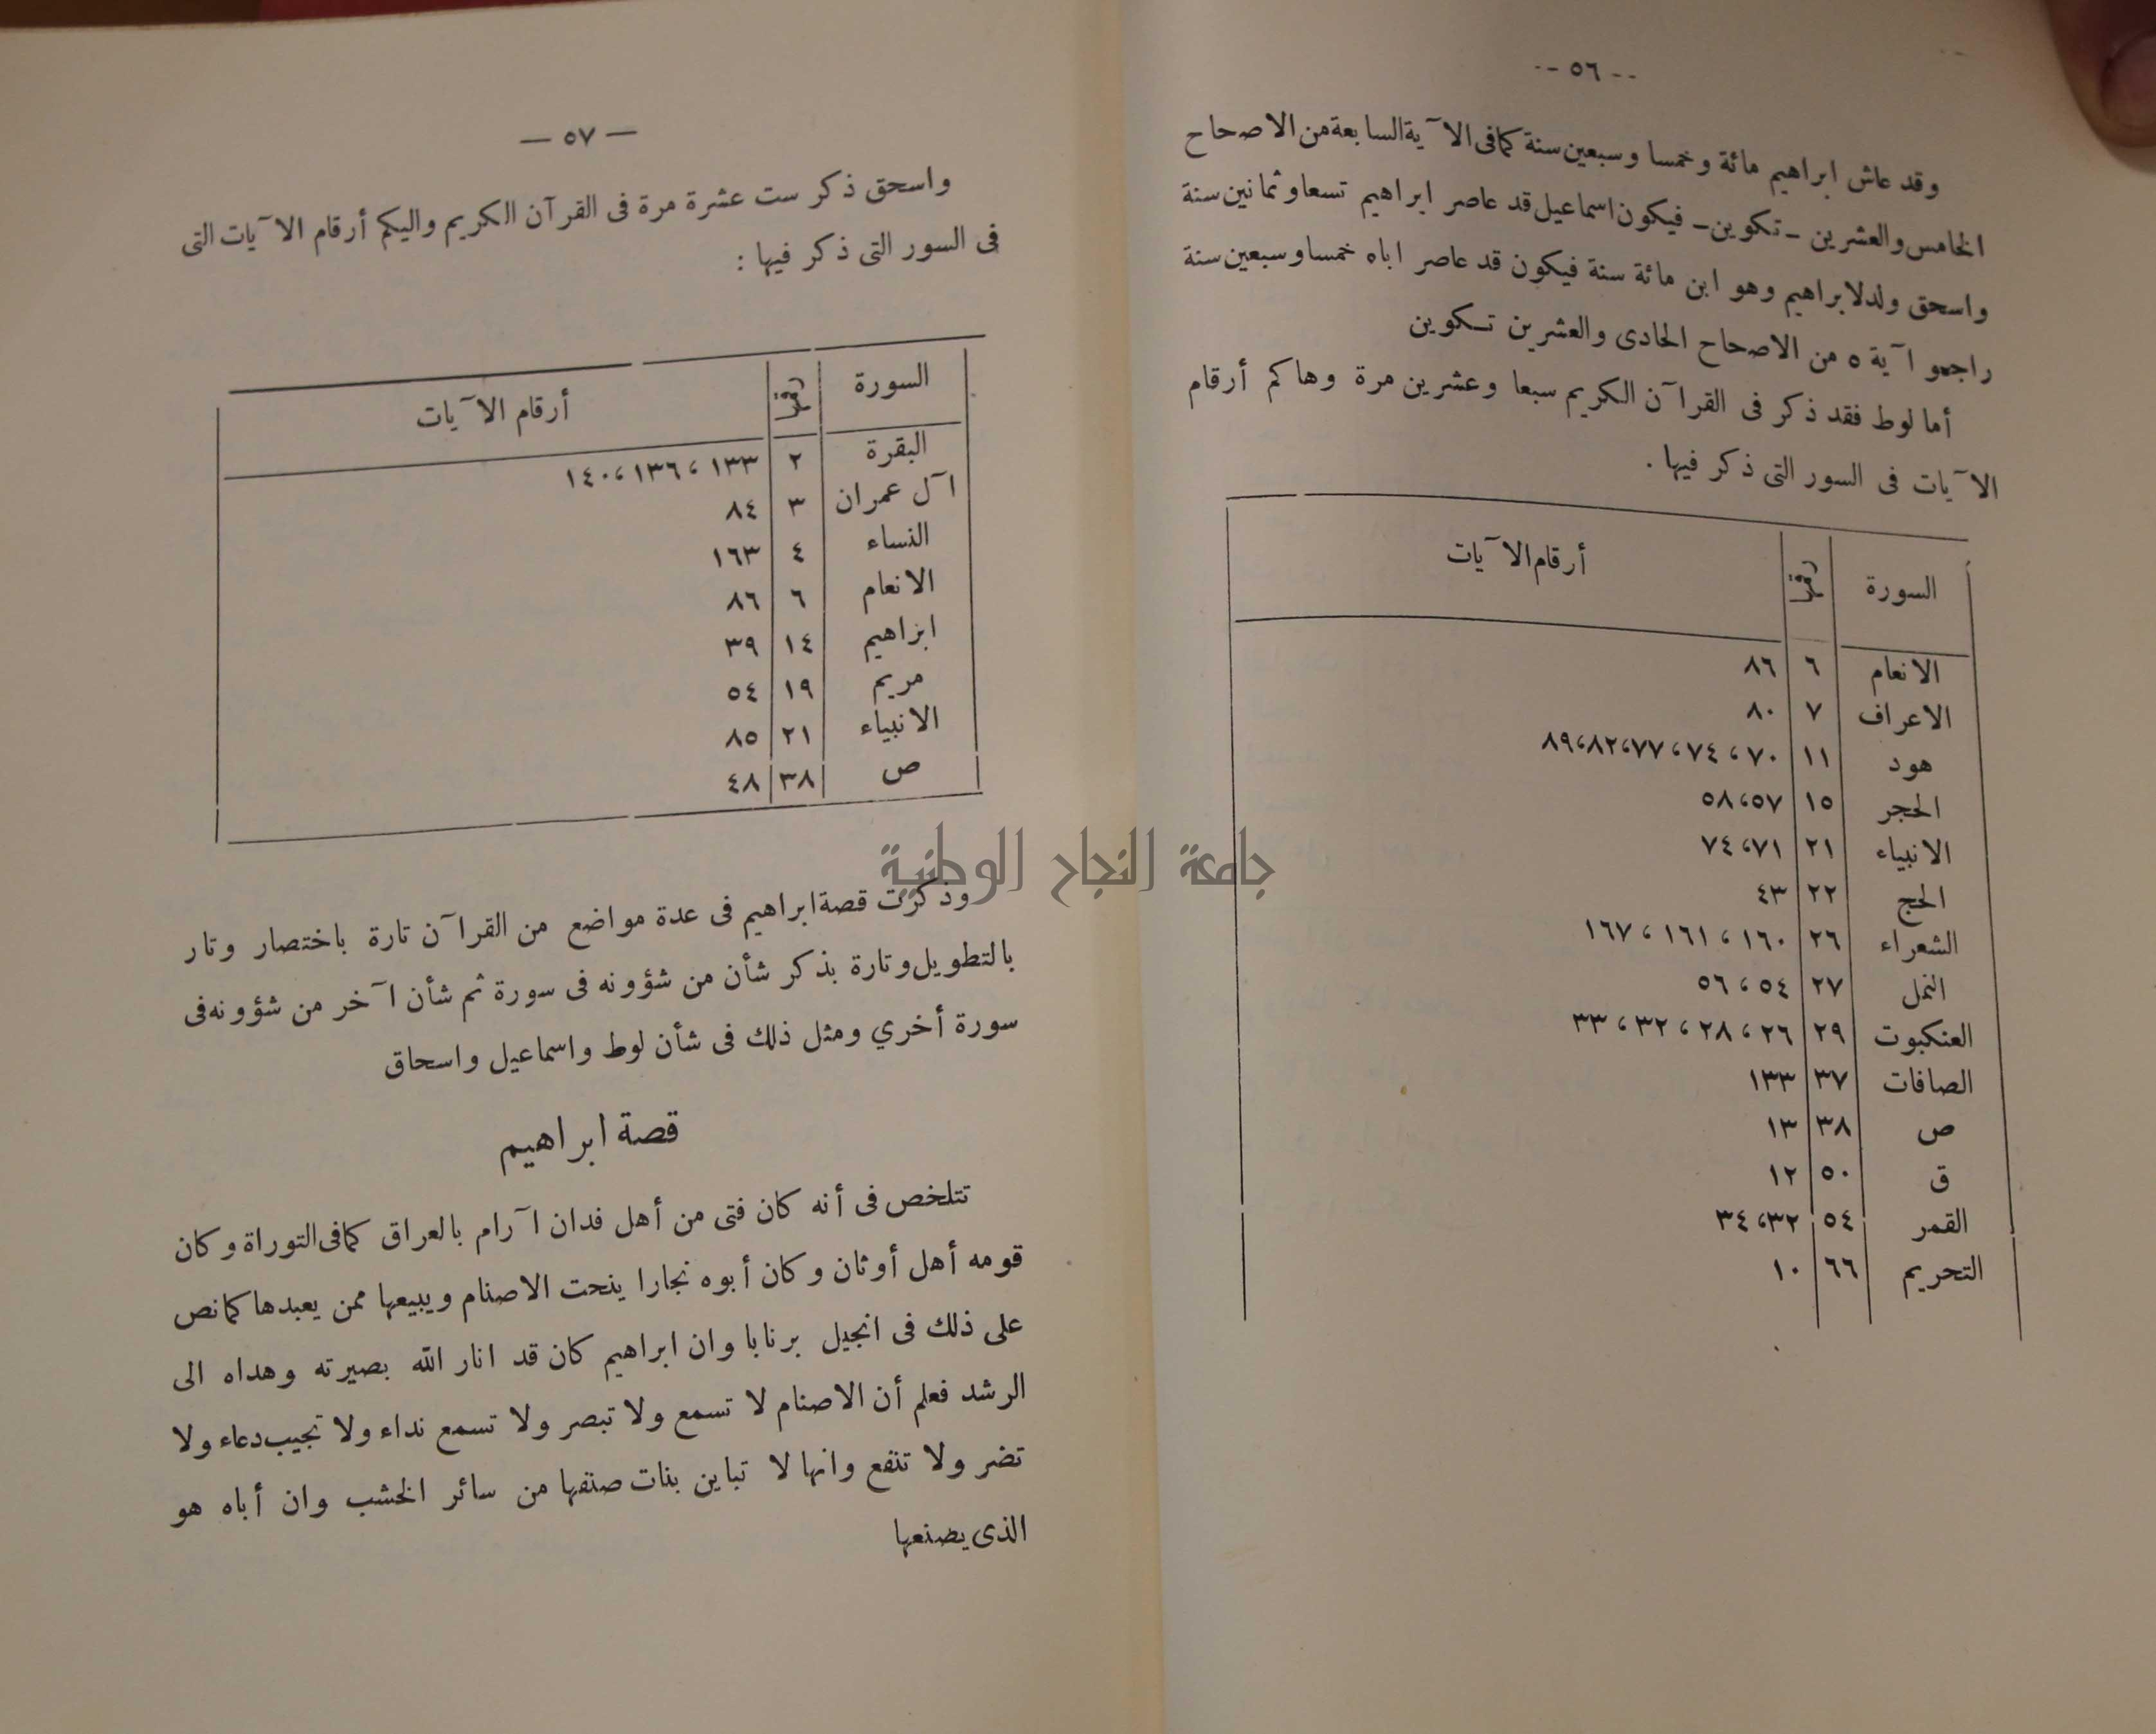 -- ٥٦ --
وقد عاش ابراهيم مائة وخمسا وسبعين سنة كما فى الآية السابعة من الاصحاح
الخامس والعشرين ـ تكوين ـ فيكون اسماعيل قد عاصر ابراهيم تسعا وثمانين سنة
واسحق ولد لابراهيم وهو ابن مائة سنة فيكون قد عاصر اباه خمسا وسبعين سنة
راجعو آية ٥ من الاصحاح الحادى والعشرين تكوين
أما لوط فقد ذكر فى القرآن الكريم سبعا وعشرين مرة وهاكم أرقام
الآيات فى السور التى ذكر فيها .
السورة رقمها أرقام الآيات
الانعام ٦ ٨٦
الاعراف ٧ ٨٠
هود ١١ ٧٠ ، ٧٤ ، ٧٧،٨٢،٨٩
الحجر ١٥ ٥٧،٥٨
الانبياء ٢١ ٧١، ٧٤
الحج ٢٢ ٤٣
الشعراء ٢٦ ١٦٠ ، ١٦١ ، ١٦٧
النمل ٢٧ ٥٤ ، ٥٦
العنكبوت ٢٩ ٢٦ ، ٢٨ ، ٣٢ ، ٣٣
الصافات ٣٧ ١٣٣
ص ٣٨ ١٣
ق ٥٠ ١٢
القمر ٥٤ ٣٢، ٣٤
التحريم ٦٦ ١٠
— ٥٧ —
واسحق ذكر ست عشرة مرة فى القرآن الكريم واليكم أرقام الآيات التى
فى السور التى ذكر فيها :
السورة رقمها أرقام الآيات
البقرة ٢ ١٣٣ ، ١٣٦ ،١٤٠
آل عمران ٣ ٨٤
النساء ٤ ١٦٣
الانعام ٦ ٨٦
ابراهيم ١٤ ٣٩
مريم ١٩ ٥٤
الانبياء ٢١ ٨٥
ص ٣٨ ٤٨
جامعة النجاح الوطنية
وذكرت قصة ابراهيم فى عدة مواضع من القرآن تارة باختصار وتار
بالتطويل وتارة بذكر شأن من شؤونه فى سورة ثم شأن آخر من شؤونه فى
سورة أخري ومثل ذلك فى شأن لوط واسماعيل واسحاق
قصة ابراهيم
تتلخص فى أنه كان فتى من أهل فدان آرام بالعراق كما فى التوراة وكان
قومه أهل أوثان وكان أبوه نجارا ينحت الاصنام ويبيعها ممن يعبدها كما نص
على ذلك فى انجيل برنابا وان ابراهيم كان قد انار الله بصيرته وهداه الى
الرشد فعلم أن الاصنام لا تسمع ولا تبصر ولا تسمع نداء ولا تجيب دعاء ولا
تضر ولا تنفع وانها لا تباين بنات صنفها من سائر الخشب وان أباه هو
الذى يصنعها